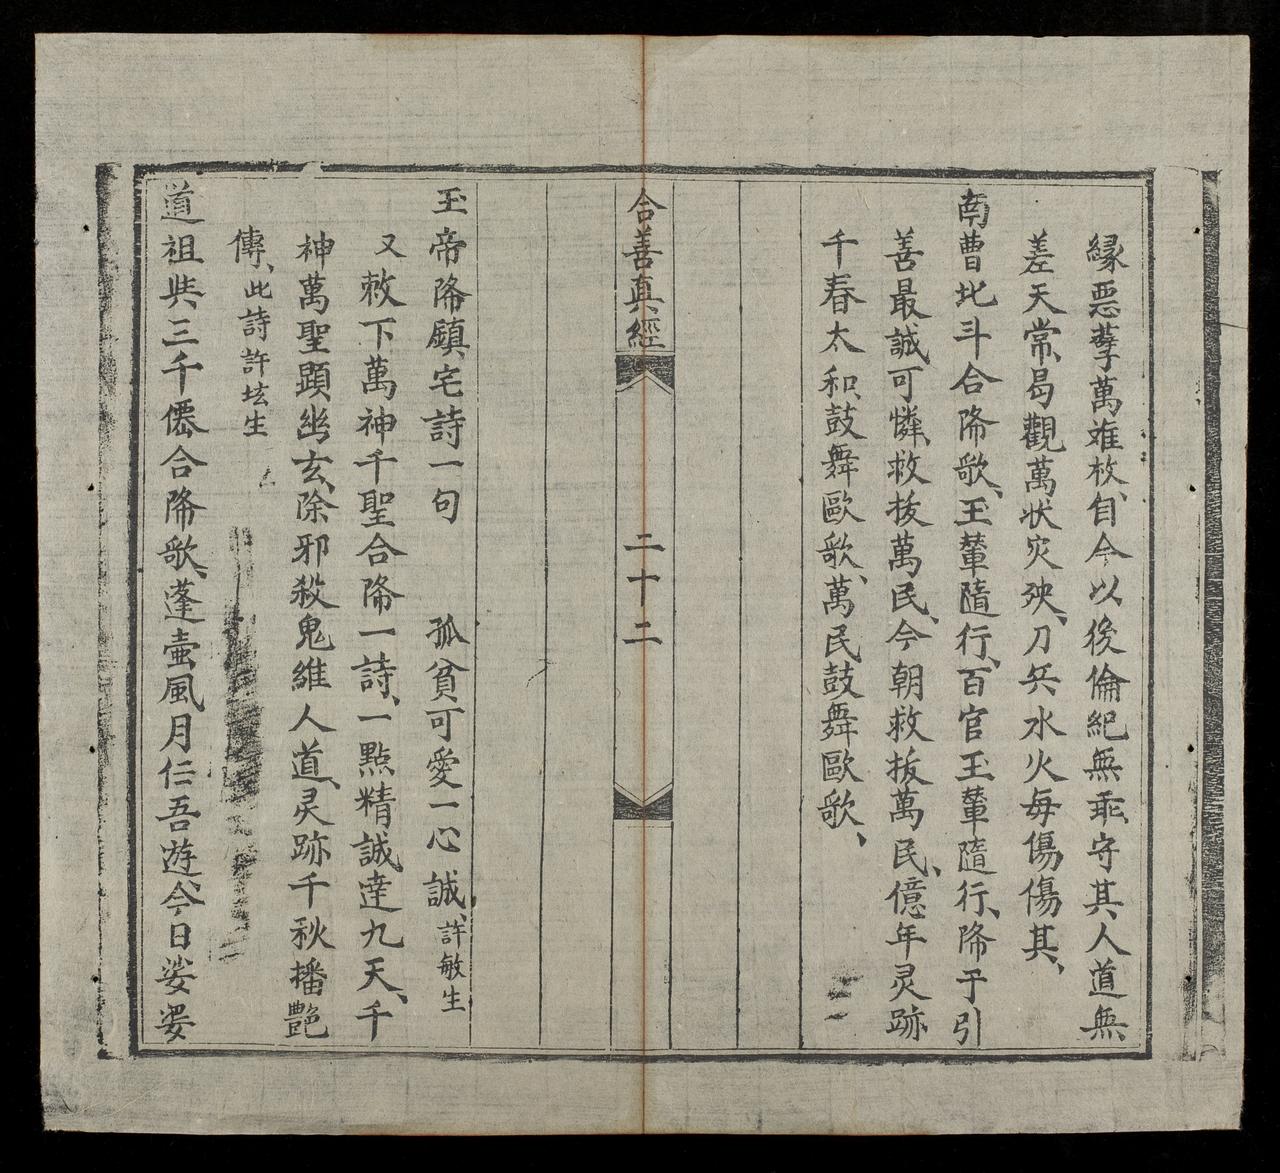 緣惡孽萬难枚、自今以後倫紀無乖、守其人道無
差天常、曷觀萬状灾殃、刀兵水火每傷傷其、
南曹北斗合降歌、玉輦隨行、百官玉輦隨行、降于引
善最誠可憐、救拔萬民、今朝救拔萬民、億年灵跡
千春太和鼓舞歐歌、萬民鼓舞歐歌、
合善真經 二十二
玉帝降鎮宅詩一句 孤貧可愛一心誠、許敏生
又敕下萬神千聖合降一詩、一點精誠達九天、千
神萬聖顕幽玄、除邪殺鬼維人道、灵跡千秋播艷
傳、此詩許坛生
道祖與三千僊合降歌、蓬壷風月仁吾遊、今日娑婆